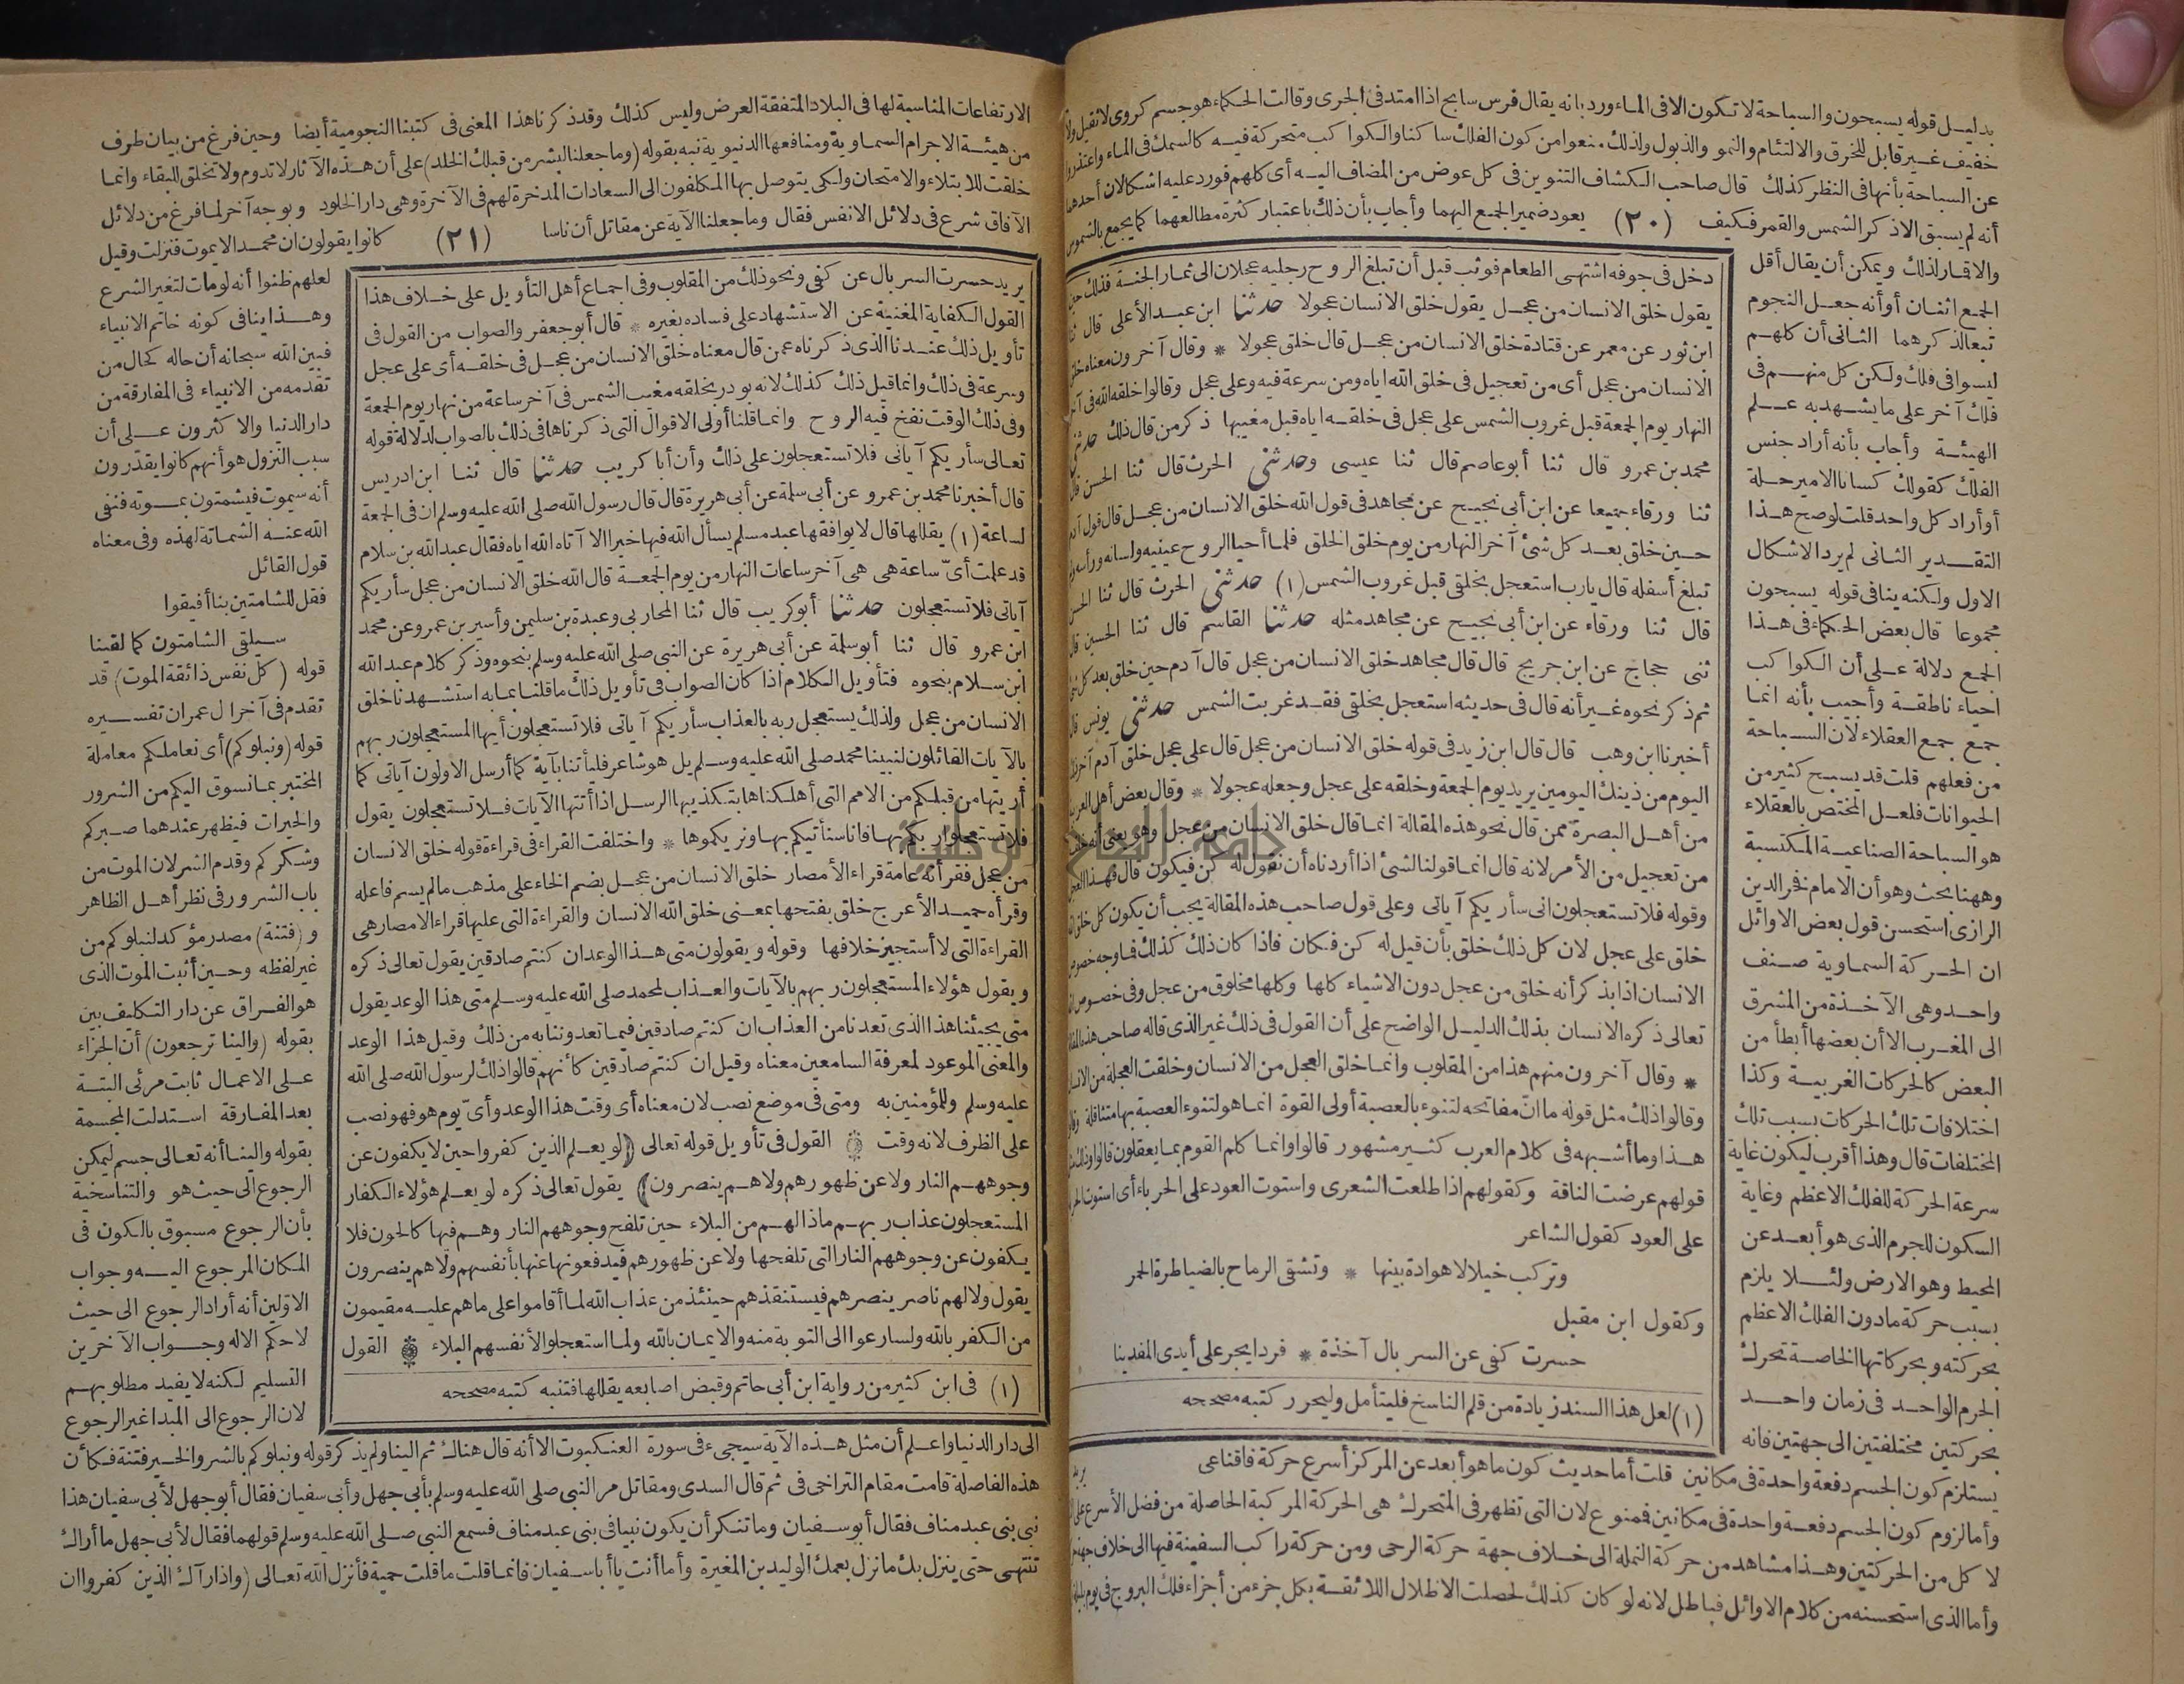 بدليل قوله يسبحون والسباحة لا تكون الا في الماء ورد بانه يقال فرس سابح اذا امتد في الجرى وقالت الحكماء هو جسم كروى لا ثقيل ولا
خفيف غير قابل للخرق والالتئام والنمو والذبول ولذلك منعوا من كون الفلك ساكنا والكواكب متحركة فيه كالسمك في الماء واعتذروا
عن السباحة بأنها في النظر كذلك قال صاحب الكشاف التنوين في كل عوض من المضاف اليه أى كلهم فورد عليه اشكالان أحدهما
أنه لم يسبق الا ذكر الشمس والقمر فكيف (٢٠) يعود ضمير الجمع اليهما وأجاب بأن ذلك باعتبار كثرة مطالعهما كما يجمع بالشموس
والاقمار لذلك ويمكن أن يقال أقل
الجمع اثنان أو أنه جعل النجوم
تبعا لذكرهما الثانى أن كلهم
ليسوا في فلك ولكن كل منهم في
فلك آخر على ما يشهد به علم
الهيئة وأجاب بأنه أراد جنس
الفلك كقولك كسانا الامير حلة
أو أراد كل واحد قلت لو صح هذا
التقدير الثانى لم يرد الاشكال
الاول ولكنه ينافى قوله يسبحون
مجموعا قال بعض الحكماء في هذا
الجمع دلالة على أن الكواكب
احياء ناطقة وأجيب بأنه انما
جمع جمع العقلاء لان السباحة
من فعلهم قلت قد يسبح كثير من
الحيوانات فلعل المختص بالعقلاء
هو السباحة الصناعية المكتسبة
وههنا بحث وهو أن الامام فخر الدين
الرازى استحسن قول بعض الاوائل
ان الحركة السماوية صنف
واحد وهى الآخذة من المشرق
الى المغرب الا أن بعضها أبطأ من
البعض كالحركات الغربية وكذا
اختلافات تلك الحركات بسبب تلك
المختلفات قال وهذا أقرب ليكون غاية
سرعة الحركة للفلك الاعظم وغاية
السكون للجرم الذى هو أبعد عن
المحيط وهو الارض ولئلا يلزم
بسبب حركة مادون الفلك الاعظم
بحركته وبحركاتها الخاصة تحرك
الجرم الواحد في زمان واحد
بحركتين مختلفتين الى جهتين فانه
دخل في جوفه اشتهى الطعام فوثب قبل أن تبلغ الروح رجليه عجلان الى ثمار الجنة فذلك حين
يقول خلق الانسان من عجل يقول خلق الانسان عجولا حدثنا ابن عبد الأعلى قال ثنا
ابن ثور عن معمر عن قتادة خلق الانسان من عجل قال خلق عجولا * وقال آخرون معناه خلق
الانسان من عجل أى من تعجيل في خلق الله اياه ومن سرعة فيه وعلى عجل وقالوا خلقه الله في آخر
النهار يوم الجمعة قبل غروب الشمس على عجل في خلقه اياه قبل مغيبها ذكر من قال ذلك حدثنى
محمد بن عمرو قال ثنا أبو عاصم قال ثنا عيسى وحدثنى الحرث قال ثنا الحسن قال
ثنا ورقاء جميعا عن ابن أبى نجيح عن مجاهد في قول الله خلق الانسان من عجل قال قول آدم
حين خلق بعد كل شئ آخر النهار من يوم خلق الخلق فلما أحيا الروح عينيه ولسانه ورأسه ولم
تبلغ أسفله قال يارب استعجل بخلقى قبل غروب الشمس (١) حدثنى الحرث قال ثنا الحسن
قال ثنا ورقاء عن ابن أبى نجيح عن مجاهد مثله حدثنا القاسم قال ثنا الحسين قال
ثنى حجاج عن ابن جريج قال قال مجاهد خلق الانسان من عجل قال آدم حين خلق بعد كل شئ
ثم ذكر نحوه غير أنه قال في حديثه استعجل بخلقى فقد غربت الشمس حدثنى يونس قال
أخبرنا ابن وهب قال قال ابن زيد في قوله خلق الانسان من عجل قال على عجل خلق آدم آخر ذلك
اليوم من ذينك اليومين يريد يوم الجمعة وخلقه على عجل وجعله عجولا * وقال بعض أهل العربية
من أهل البصرة ممن قال نحو هذه المقالة انما قال خلق الانسان من عجل وهو يعنى أنه خلقه
من تعجيل من الأمر لانه قال انما قولنا لشئ اذا أردناه أن نقول له كن فيكون قال فهذا العجل
وقوله فلا تستعجلون انى سأريكم آياتى وعلى قول صاحب هذه المقالة يجب أن يكون كل خلق الله
خلق على عجل لان كل ذلك خلق بأن قيل له كن فكان فاذا كان ذلك كذلك فما وجه خصوص
الانسان اذا بذكر أنه خلق من عجل دون الاشياء كلها وكلها مخلوق من عجل وفى خصوص الله
تعالى ذكره الانسان بذلك الدليل الواضح على أن القول في ذلك غير الذى قاله صاحب هذه المقالة
* وقال آخرون منهم هذا من المقلوب وانما خلق العجل من الانسان وخلقت العجلة من الانسان
وقالوا ذلك مثل قوله ما ان مفاتحه لتنوء بالعصبة أولى القوة انما هو لتنوء العصبة بها متثاقلة وقالوا
هذا وما أشبهه في كلام العرب كثير مشهور قالوا وانما كلم القوم بما يعقلون قالوا وذلك مثل
قولهم عرضت الناقة وكقولهم اذا طلعت الشعرى واستوت العود على الحرباء أى استوت الحرباء
على العود كقول الشاعر
وتركب خيلا لا هوادة بينها * وتشقى الرماح بالضياطرة الحمر
وكقول ابن مقبل
حسرت كفى عن السربال آخذة * فردا يجر على أيدى المفدينا
(١) لعل هذا السند زيادة من قلم الناسخ فليتأمل وليحرر كتبه مصححه
يريد
يستلزم كون الجسم دفعة واحدة في مكانين قلت أما حديث كون ما هو أبعد عن المركز أسرع حركة فاقناعى
وأما لزوم كون الجسم دفعة واحدة في مكانين فممنوع لان التى تظهر في المتحرك هى الحركة المركبة الحاصلة من فضل الأسرع على
لا كل من الحركتين وهذا مشاهد من حركة النملة الى خلاف جهة حركة الرحى ومن حركة راكب السفينة فيها الى خلاف جهتها
وأما الذى استحسنه من كلام الاوائل فباطل لانه لو كان كذلك لحصلت الاظلال اللائقة بكل جزء من أجزاء فلك البروج في يوم بليلته
الارتفاعات المناسبة لها في البلاد المتفقة العرض وليس كذلك وقد ذكرنا هذا المعنى في كتبنا النجومية أيضا وحين فرغ من بيان طرف
من هيئة الاجرام السماوية ومنافعها الدنيوية نبه بقوله (وما جعلنا لبشر من قبلك الخلد) على أن هذه الآثار لا تدوم ولا تخلق للبقاء وانما
خلقت للابتلاء والامتحان ولكى يتوصل بها المكلفون الى السعادات المدخرة لهم في الآخرة وهى دار الخلود وبوجه آخر لما فرغ من دلائل
الآفاق شرع في دلائل الانفس فقال وما جعلنا الآية عن مقاتل أن ناسا (٢١) كانوا يقولون ان محمدا لا يموت فنزلت وقيل
يريد حسرت السربال عن كفى ونحو ذلك من المقلوب وفى اجماع أهل التأويل على خلاف هذا
القول الكفاية المغنية عن الاستشهاد على فساده بغيره * قال أبو جعفر والصواب من القول في
تأويل ذلك عندنا الذى ذكرناه عمن قال معناه خلق الانسان من عجل في خلقه أى على عجل
وسرعة في ذلك وانما قيل ذلك كذلك لانه بودر بخلقه مغيب الشمس في آخر ساعة من نهار يوم الجمعة
وفى ذلك الوقت نفخ فيه الروح وانما قلنا أولى الاقوال التى ذكرناها في ذلك بالصواب لدلالة قوله
تعالى سأريكم آياتى فلا تستعجلون على ذلك وأن أبا كريب حدثنا قال ثنا ابن ادريس
قال أخبرنا محمد بن عمرو عن أبى سلمة عن أبى هريرة قال قال رسول الله صلى الله عليه وسلم ان في الجمعة
لساعة (١) يقللها قال لا يوافقها عبد مسلم يسأل الله فيها خيرا الا آتاه الله اياه فقال عبد الله بن سلام
قد علمت أىّ ساعة هى هى آخر ساعات النهار من يوم الجمعة قال الله خلق الانسان من عجل سأريكم
آياتى فلا تستعجلون حدثنا أبو كريب قال ثنا المحاربى وعبدة بن سليمن وأسير بن عمرو عن محمد
ابن عمرو قال ثنا أبو سلمة عن أبى هريرة عن النبى صلى الله عليه وسلم بنحوه وذكر كلام عبد الله
ابن سلام بنحوه فتأويل الكلام اذا كان الصواب في تأويل ذلك ما قلنا بما به استشهدنا خلق
الانسان من عجل ولذلك يستعجل ربه بالعذاب سأريكم آياتى فلا تستعجلون أيها المستعجلون ربهم
بالآيات القائلون لنبينا محمد صلى الله عليه وسلم بل هو شاعر فليأتنا بآية كما أرسل الاولون آياتى كما
أريتها من قبلكم من الامم التى أهلكناها بتكذيبها الرسل اذا أتتها الآيات فلا تستعجلون يقول
فلا تستعجلوا ربكم بها فانا سنأتيكم بها ونريكموها * واختلفت القراء في قراءة قوله خلق الانسان
من عجل فقرأته عامة قراء الأمصار خلق الانسان من عجل بضم الخاء على مذهب ما لم يسم فاعله
وقرأه حميد الأعرج خلق بفتحها بمعنى خلق الله الانسان والقراءة التى عليها قراء الامصار هى
القراءة التى لا أستجيز خلافها وقوله ويقولون متى هذا الوعد ان كنتم صادقين يقول تعالى ذكره
ويقول هؤلاء المستعجلون ربهم بالآيات والعذاب لمحمد صلى الله عليه وسلم متى هذا الوعد يقول
متى يجيئنا هذا الذى تعدنا من العذاب ان كنتم صادقين فيما تعدوننا به من ذلك وقيل هذا الوعد
والمعنى الموعود لمعرفة السامعين معناه وقيل ان كنتم صادقين كأنهم قالوا ذلك لرسول الله صلى الله
عليه وسلم وللمؤمنين به ومتى في موضع نصب لان معناه أى وقت هذا الوعد وأىّ يوم هو فهو نصب
على الظرف لانه وقت القول في تأويل قوله تعالى (لو يعلم الذين كفروا حين لا يكفون عن
وجوههم النار ولا عن ظهورهم ولا هم ينصرون) يقول تعالى ذكره لو يعلم هؤلاء الكفار
المستعجلون عذاب ربهم ماذا لهم من البلاء حين تلفح وجوههم النار وهم فيها كالحون فلا
يكفون عن وجوههم النار التى تلفحها ولا عن ظهورهم فيدفعونها عنها بأنفسهم ولا هم ينصرون
يقول ولا لهم ناصر ينصرهم فيستنقذهم حينئذ من عذاب الله لما أقاموا على ما هم عليه مقيمون
من الكفر بالله ولسارعوا الى التوبة منه والايمان بالله ولما استعجلوا لأنفسهم البلاء القول
(١) في ابن كثير من رواية ابن أبى حاتم وقبض اصابعه يقللها فتنبه كتبه مصححه
لعلهم ظنوا أنه لو مات لتغير الشرع
وهذا ينافى كونه خاتم الانبياء
فبين الله سبحانه أن حاله كحال من
تقدمه من الانبياء في المفارقة من
دار الدنيا والاكثرون على أن
سبب النزول هو أنهم كانوا يقدرون
أنه سيموت فيشمتون بموته فنفى
الله عنه الشماتة لهذه وفى معناه
قول القائل
فقل للشامتين بنا أفيقوا
سيلقى الشامتون كما لقينا
قوله (كل نفس ذائقة الموت) قد
تقدم في آخر آل عمران تفسيره
قوله (ونبلوكم) أى نعاملكم معاملة
المختبر بما نسوق اليكم من الشرور
والخيرات فيظهر عندهما صبركم
وشكركم وقدم الشر لان الموت من
باب الشرور في نظر أهل الظاهر
و(فتنة) مصدر مؤكد لنبلوكم من
غير لفظه وحين أثبت الموت الذى
هو الفراق عن دار التكليف بين
بقوله (والينا ترجعون) أن الجزاء
على الاعمال ثابت مرئى البتة
بعد المفارقة استدلت المجسمة
بقوله والينا أنه تعالى جسم ليمكن
الرجوع الى حيث هو والتناسخية
بأن الرجوع مسبوق بالكون في
المكان المرجوع اليه وجواب
الاولين أنه أراد الرجوع الى حيث
لا حكم الا له وجواب الآخرين
التسليم لكنه لا يفيد مطلوبهم
لان الرجوع الى المبدا غير الرجوع
الى دار الدنيا واعلم أن مثل هذه الآية سيجىء في سورة العنكبوت الا أنه قال هناك ثم الينا ولم يذكر قوله ونبلوكم بالشر والخير فتنة فكأن
هذه الفاصلة قامت مقام التراخى في ثم قال السدى ومقاتل مر النبى صلى الله عليه وسلم بأبى جهل وأبى سفيان فقال أبو جهل لأبى سفيان هذا
نبى بنى عبد مناف فقال أبو سفيان وما تنكر أن يكون نبيا في بنى عبد مناف فسمع النبى صلى الله عليه وسلم قولهما فقال لأبى جهل ما أراك
تنتهى حتى ينزل بك ما نزل بعمك الوليد بن المغيرة وأما أنت يا أبا سفيان فانما قلت ما قلت حمية فأنزل الله تعالى (واذا رآك الذين كفروا ان